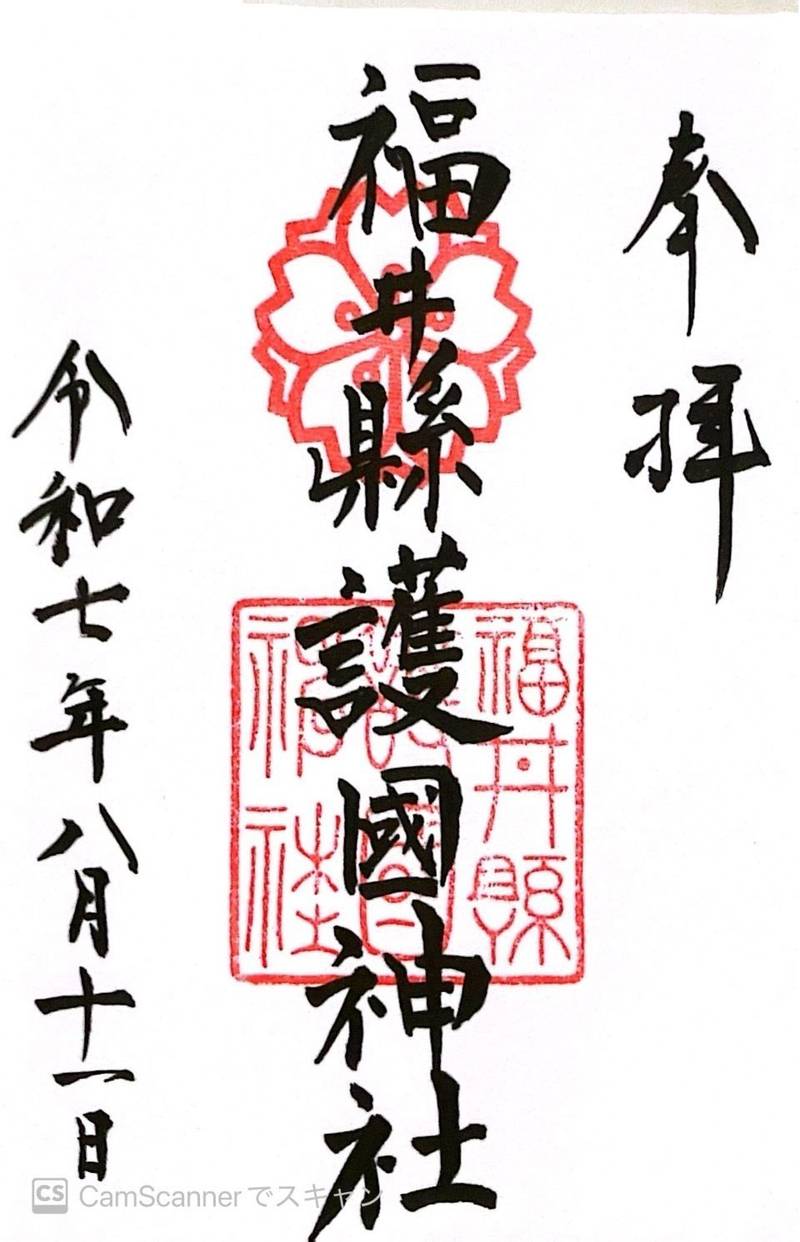 奉拝
福井縣護國神社
福井縣
護國
神社
令和七年八月十一日
CS CamScanner でスキャン